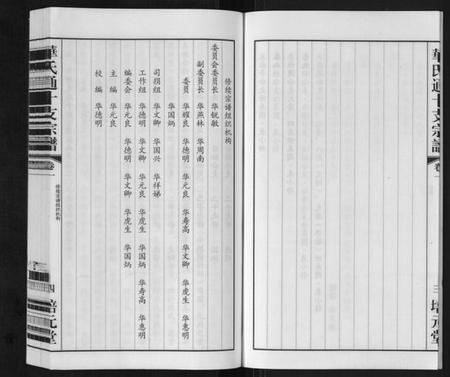 華氏通十支宗譜
卷一
三
培元堂
修续宗谱组织机构
委员会委员长 华锐敏
副委员长 华燕林 华周南
委员 华耀良 华德明 华元良 华寿高 华文卿 华虎生 华惠明
华国炳
司捐组 华文卿 华国兴 华祥娣
工作组 华德明 华文卿 华元良 华虎生 华国炳 华寿高 华惠明
编委会 华元良 华德明 华文卿 华虎生 华国炳
主编 华元良
校编 华德明
華氏通十支宗譜
卷一
修续宗谱组织机构
四
培元堂